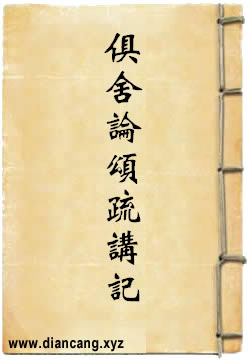 俱舍論頌疏講記
www.diancang.xyz